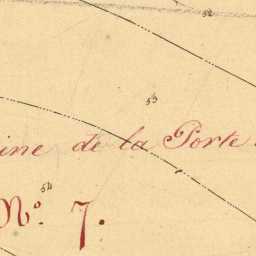 52
53
ine de la Porte
54
Nº. 7.